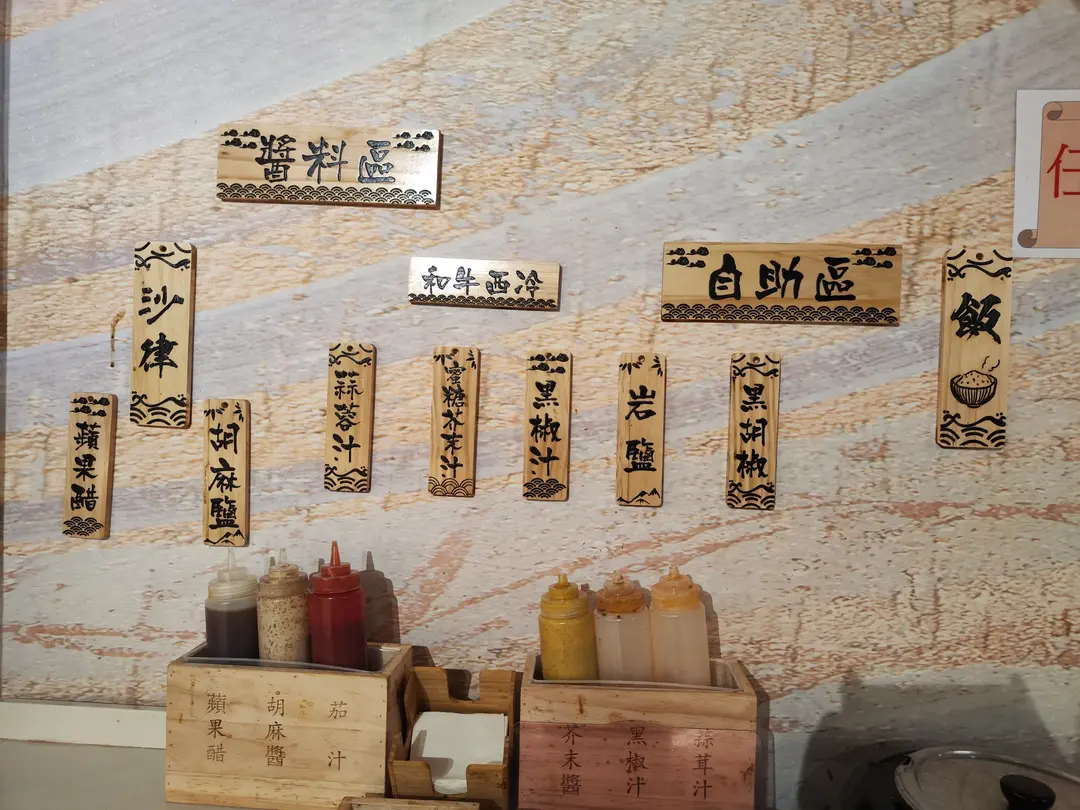 醬料區
任
沙律
和牛西冷
自助區
飯
蘋果醋
胡麻鹽
蒜蓉汁
蜜糖芥末汁
黑椒汁
岩鹽
黑胡椒
蘋果醋
胡麻醬
茄汁
芥末醬
黑椒汁
蒜茸汁